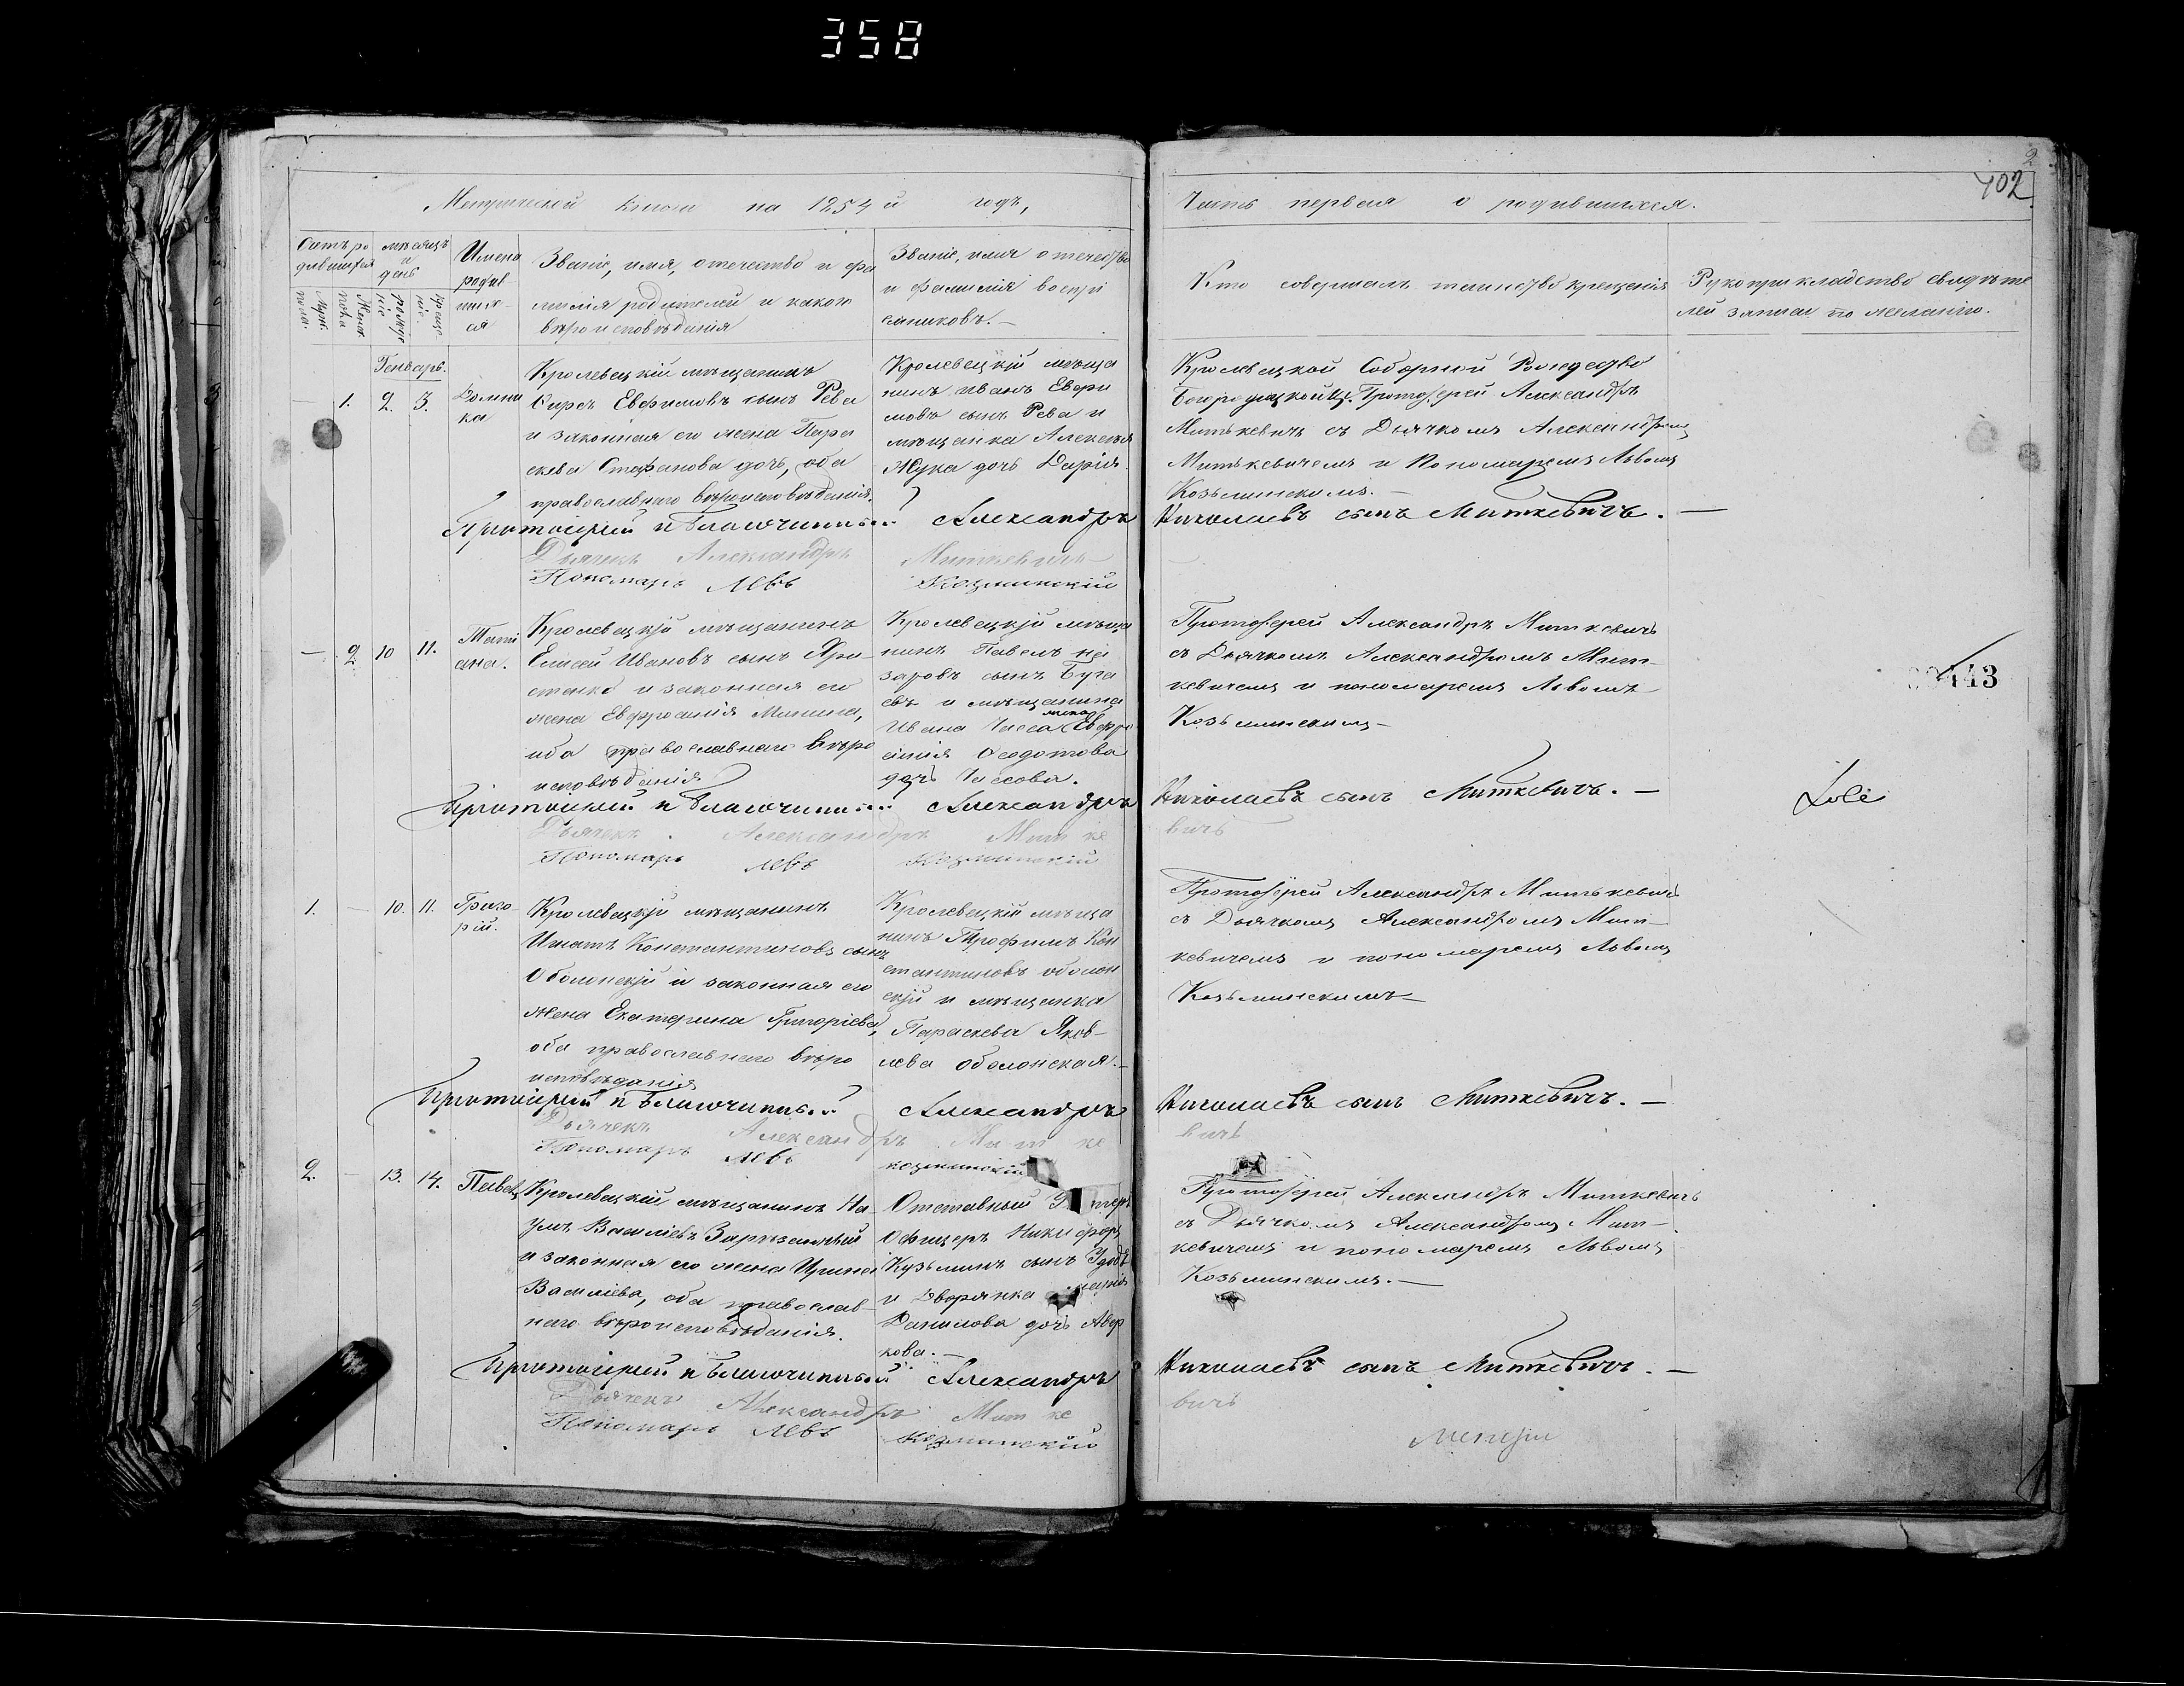 358
2
402
Метрической книги на 1854 й годъ,
Часть первая о родившихся.
Счетъ ро
дившихся
Муж.
пола
Женск
пола
мѣсяцъ
и
день
рожде
нія
креще
нія.
Имена
родив
ших-
ся
Званіе, имя, отечество и фа
милія родителей и какого
вѣроисповѣданія
Званіе, имя отечество
и фамилія воспрі
емниковъ.—
Кто совершалъ таинство крещенія
Рукоприкладство свидѣте
лей записи по желанію.
Генварь.
— 1. 2. 3.
Домни
ка
Кролевецкій мѣщанинъ
Сидоръ Евфимовъ сынъ Рева
и законная его жена Пара
скева Стефанова дочь, оба
православнаго вѣроисповѣданія.
Кролевецкій мѣща
нинъ Иванъ Евфи
мовъ сынъ Рева и
мѣщанка Алексѣя
Жука дочь Дарія.
Кролевецкой Соборной Рождество
Богородицкой Ц. Протоіерей Александръ
Митькевичъ съ Дьячкомъ Александромъ
Митькевичемъ и Пономаремъ Львомъ
Козьминскимъ.—
Протоіерей и Благочинный Александръ Николаевъ сынъ Миткевичъ. —
Дьячекъ Александръ Миткевичъ
Пономарь Левъ Козминскій
— 2 10 11.
Тати
ана.
Кролевецкій мѣщанинъ
Елисей Ивановъ сынъ
стенко и законная его
жена Евфросинія Минина,
оба православнаго вѣро
исповѣданія
Кролевецкій мѣща
нинъ Павелъ На
заровъ сынъ Буга
евъ и мѣщанина
Ивана Часса жена Евфро
синія Ѳеодотова
дочь Чассова.
Протоіерей Александръ Миткевичъ
съ Дьячкомъ Александромъ Мит-
кевичемъ и пономаремъ Львомъ
Козьминскимъ—
443
Протоіерей и Благочинный Александръ Николаевъ сынъ Миткевичъ. —
Дьячекъ Александръ Митке
вичъ
Пономарь Левъ Козминскій
1. — 10. 11.
Григо
рій.
Кролевецкій мѣщанинъ
Игнатъ Константиновъ сынъ
Оболонскій и законная его
жена Екатерина Григоріева,
оба православнаго вѣро
исповѣданія
Кролевецкій мѣща
нинъ Трофимъ Кон
стантиновъ оболон
скій и мѣщанка
Параскева Яков-
лева оболонская.—
Протоіерей Александръ Митькевичъ
съ Дьячкомъ Александромъ Мит-
кевичемъ и пономаремъ Львомъ
Козьминскимъ—
Протоіерей и Благочинный Александръ Николаевъ сынъ Миткевичъ. —
Дьячекъ Александръ Митке
вичъ
Пономарь Левъ козминскій
2. — 13. 14.
Павелъ
Кролевецкій мѣщанинъ На
умъ Василіевъ
и законная его жена Ирина
Василіева, оба православ-
наго вѣроисповѣданія.
Отставный
Офицеръ Никифоръ
Кузьминъ сынъ
и Дворянка
Данилова дочь Авер
кова.—
Протоіерей Александръ Миткевичъ
съ Дьячкомъ Александромъ Мит-
кевичемъ и пономаремъ Львомъ
Козьминскимъ.—
Протоіерей и Благочинный Александръ Николаевъ сынъ Миткевичъ. —
Дьячекъ Александръ Митке
вичъ
Пономарь Левъ Козминскій